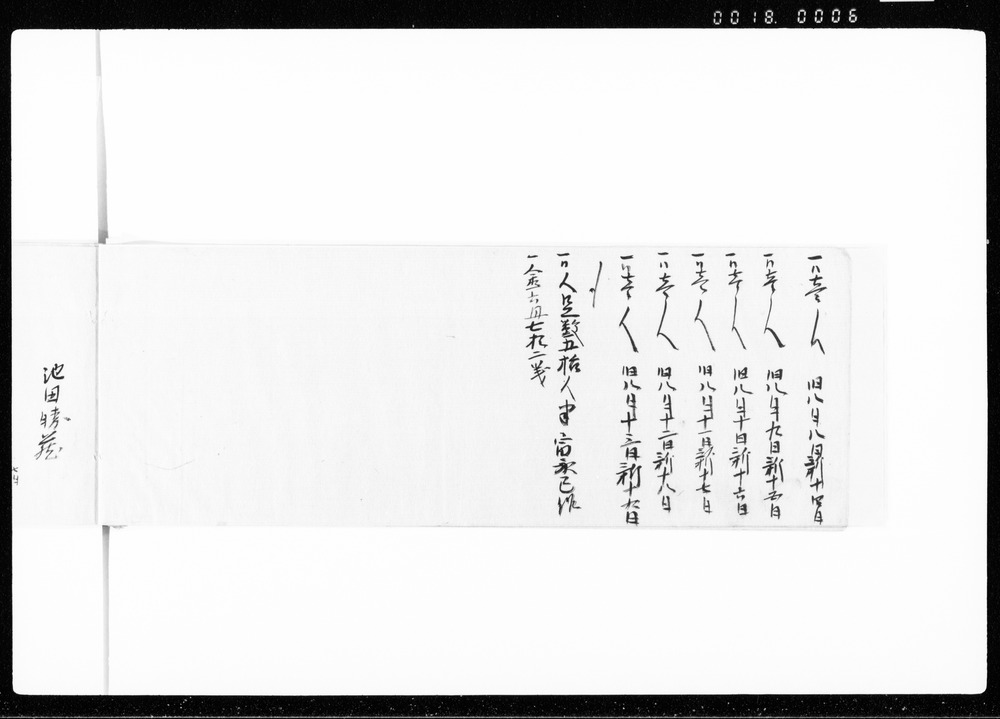 0018.0006
一〃壱人 旧八月八日新十四日
一〃壱人 旧八月九日新十五日
一〃壱人 旧八月十日新十六日
一〃壱人 旧八月十一日新十七日
一〃壱人 旧八月十二日新十八日
一〃壱人 旧八月十三日新十九日
〆
一〃人足数五拾人半 富永已作
一金六円七拾二戋
池田勝蔵